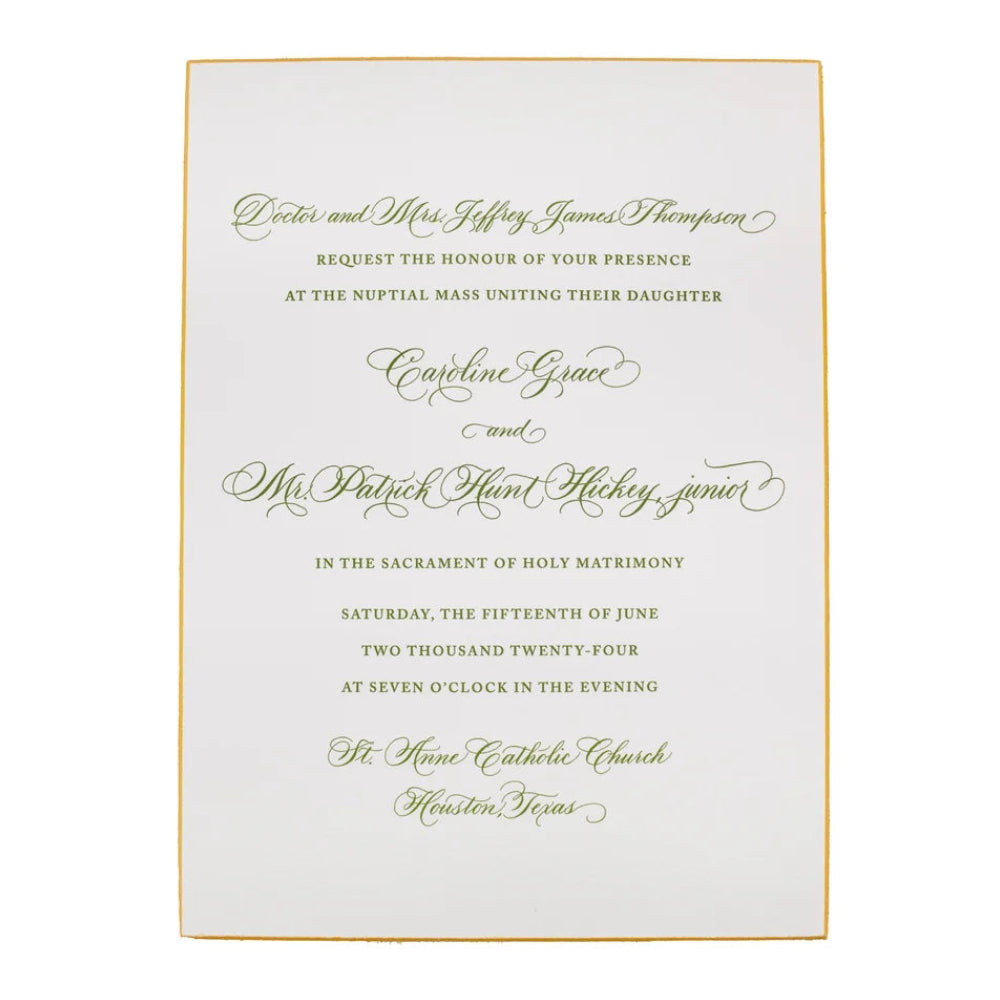 Doctor and Mrs. Jeffrey James Thompson
REQUEST THE HONOUR OF YOUR PRESENCE
AT THE NUPTIAL MASS UNITING THEIR DAUGHTER
Caroline Grace
and
Mr. Patrick Hunt Hickey, junior
IN THE SACRAMENT OF HOLY MATRIMONY
SATURDAY, THE FIFTEENTH OF JUNE
TWO THOUSAND TWENTY-FOUR
AT SEVEN O'CLOCK IN THE EVENING
St. Anne Catholic Church
Houston, Texas